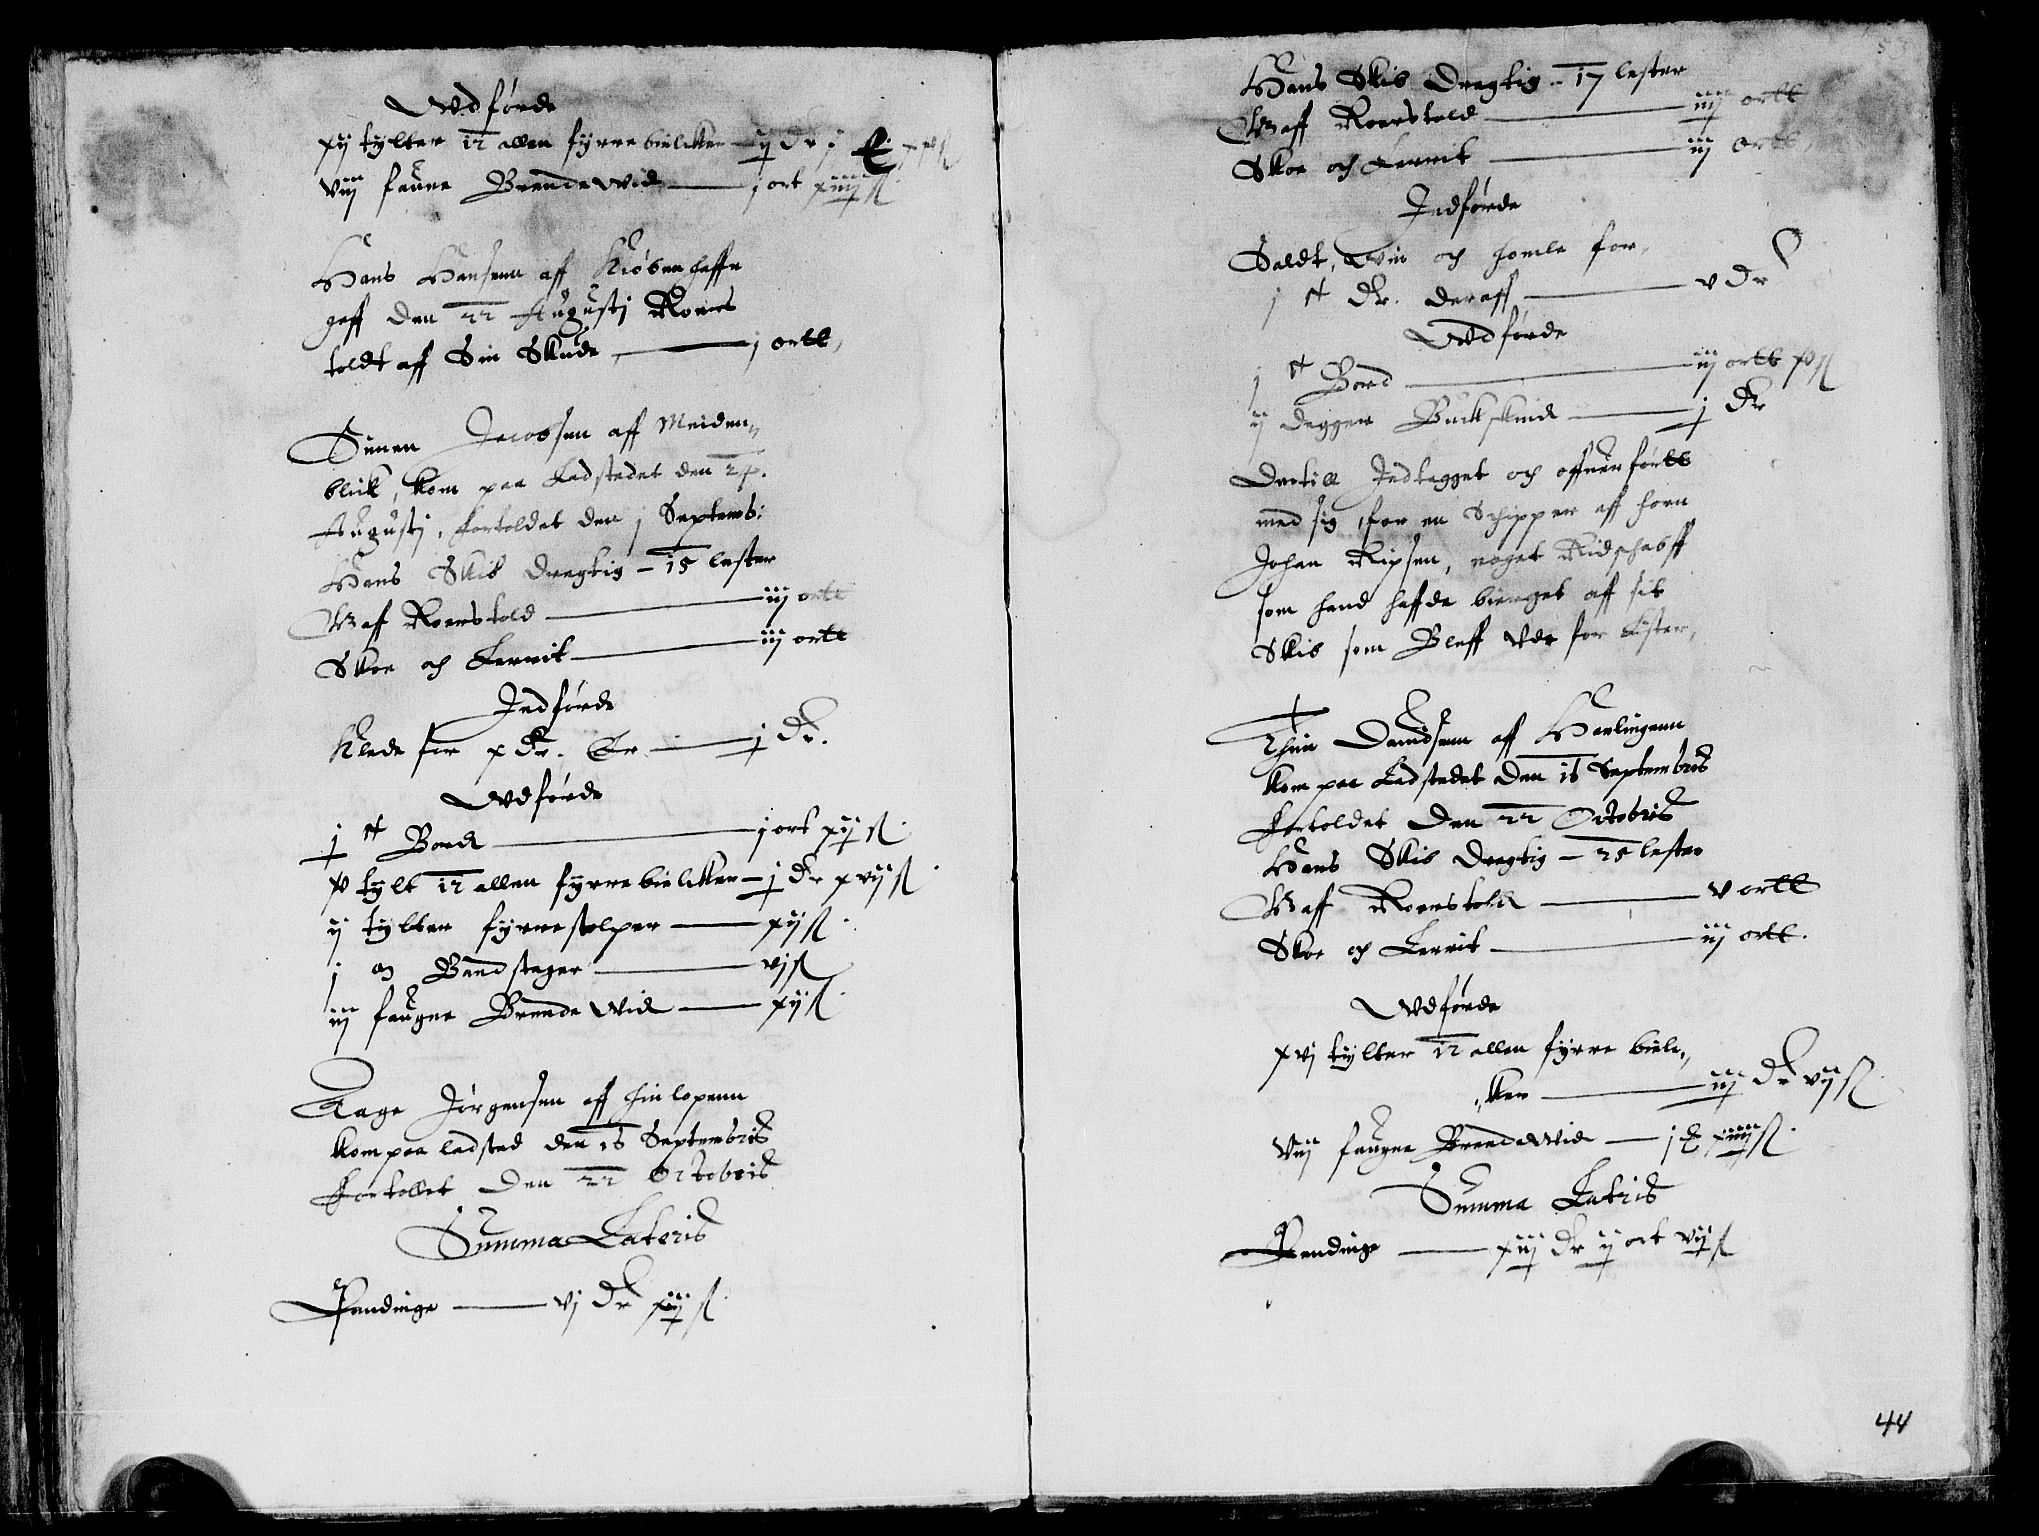 Wdførde
xij tylter 12 allen fyrre bielcker — ij Dr j
viij faune Brendewid — j ort xiiij ß
Hans Hansenn aff Kiøbenhaffn
gaff den 22 Augustj Roers
toldt aff Sin Skude — j ortt,
Sunen Jacobsen aff Meiden„
blick, kom paa Ladstedet den
Augustj, fortoldet den j Septemb:
Hans Skib Dregtig – 15 lester
Gaff Roerstold — iij ortt
Skoe och Lerrit — iij ortt
Indførde
Klede for x Dr. Er — j Dr.
Wdførde
j Bord — j ort xij ß.
x tylt 12 allen fyrre bielcker — j Dr xvij ß.
ij tylter fyrre stolper — xij ß.
j Baandstager — vj ß
iij faugne Brende Wid — xij ß.
Aage Jørgensen aff hinlopenn
kom paa ladsted den 16 Septembris
Fortollit Den 22 Octobris
Summa Lateris
Pendinge — vj Dr xiij ß.
53
Hans Skib Dregtig – 17 lester
Gaff Roerstold — iiij ortt
Skoe och Lerrit — iij ortt,
Indførde
Saldt, Win och homle for,
j Dr. deraff — v Dr
Wdførde
j Bord — iij ortt x ß
ij degger Buckskind — j Dr
Dertill Indtagget och offuerførtt
med sig, for en Schipper aff horn
Johan Ripsen, noget Ridschabff
som hand haffde bierget aff sit
Skib som Bleff Vdr for Lister,
Thiu Dauidsenn aff Harlingenn
kom paa Ladstedet Den 16 Septembris
Fortoldet Den 22 Octobris
Hans Skib Dregtig – 25 lester
Gaff Roerstold — v ortt
Skoe och Lerrit — iij ortt.
Wdførde
xvj tylter 12 allen fyrre biel„
„ker — iij Dr vij ß.
viij faugne Brendewid — j xiiij ß.
Summa Latris
Pendinge — xiij Dr ij ort vij ß
44